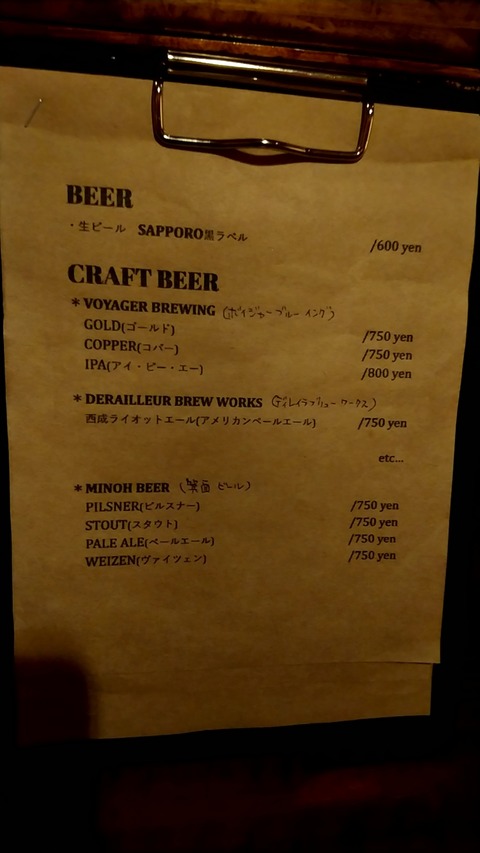 BEER
・生ビール SAPPORO黒ラベル /600 yen
CRAFT BEER
* VOYAGER BREWING (ボイジャーブルーイング)
GOLD(ゴールド) /750 yen
COPPER(コパー) /750 yen
IPA(アイ・ピー・エー) /800 yen
* DERAILLEUR BREW WORKS (ディレイラブリューワークス)
西成ライオットエール(アメリカンペールエール) /750 yen
etc...
* MINOH BEER (箕面ビール)
PILSNER(ピルスナー) /750 yen
STOUT(スタウト) /750 yen
PALE ALE(ペールエール) /750 yen
WEIZEN(ヴァイツェン) /750 yen